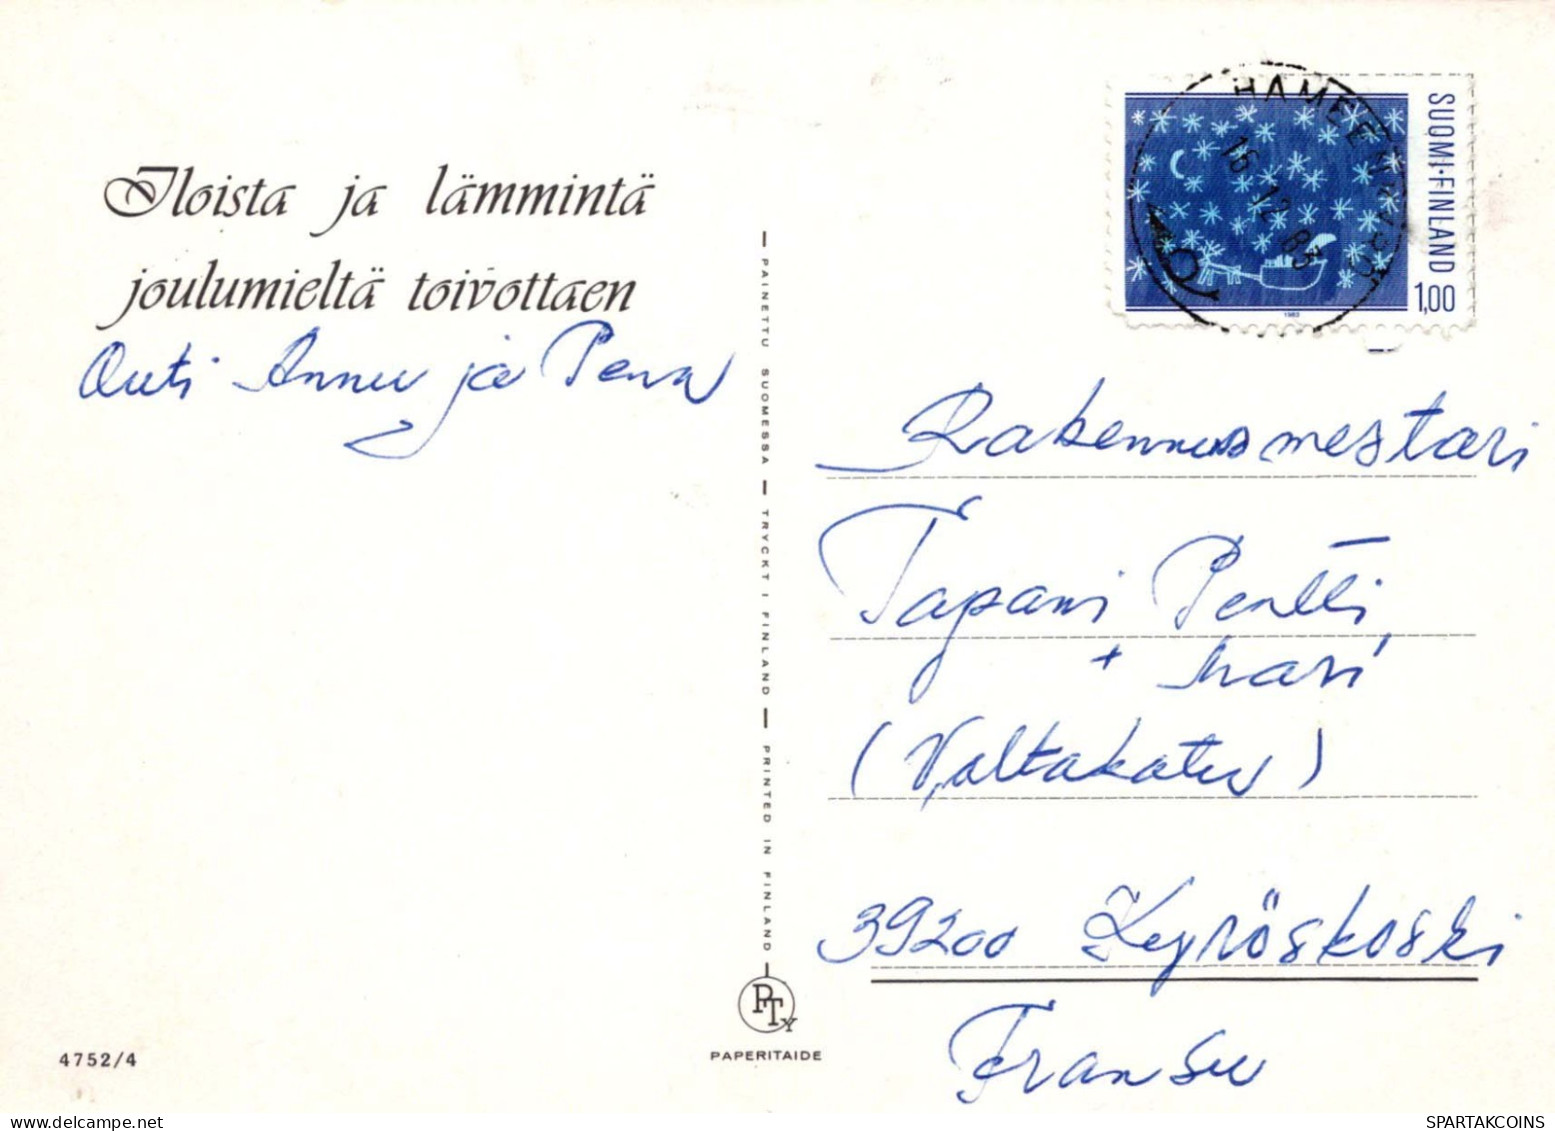 Iloista ja lämmintä
joulumieltä toivottaen
Outi Annu ja Pena
4752/4
PAINETTU SUOMESSA — TRYCKT I FINLAND — PRINTED IN FINLAND
PTY
PAPERITAIDE
16.12.83
SUOMI·FINLAND
1,00
1983
Rakennusmestari
Tapani Pentti,
+ Mari
(Valtakatu)
39200 Kyröskoski
Fransu
SPARTAKCOINS